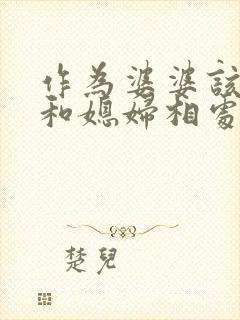 作為婆婆該
和媳婦相處
楚兒